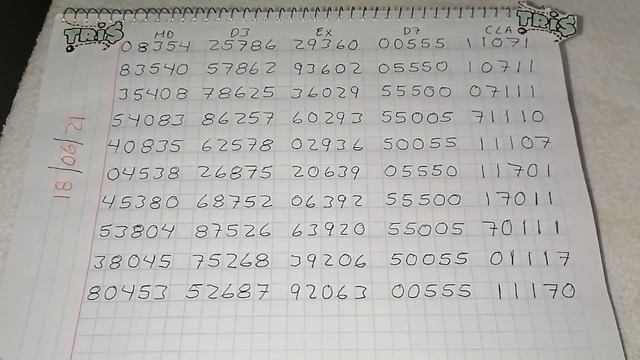 TRIS HD D3 Ex D7 CLA TRIS
08354 25786 29360 00555 11071
83540 57862 93602 05550 10711
35408 78625 36029 55500 07111
54083 86257 60293 55005 71110
40835 62578 02936 50055 11107
04538 26875 20639 05550 11701
45380 68752 06392 55500 17011
53804 87526 63920 55005 70111
38045 75268 39206 50055 01117
80453 52687 92063 00555 11170
18/06/21